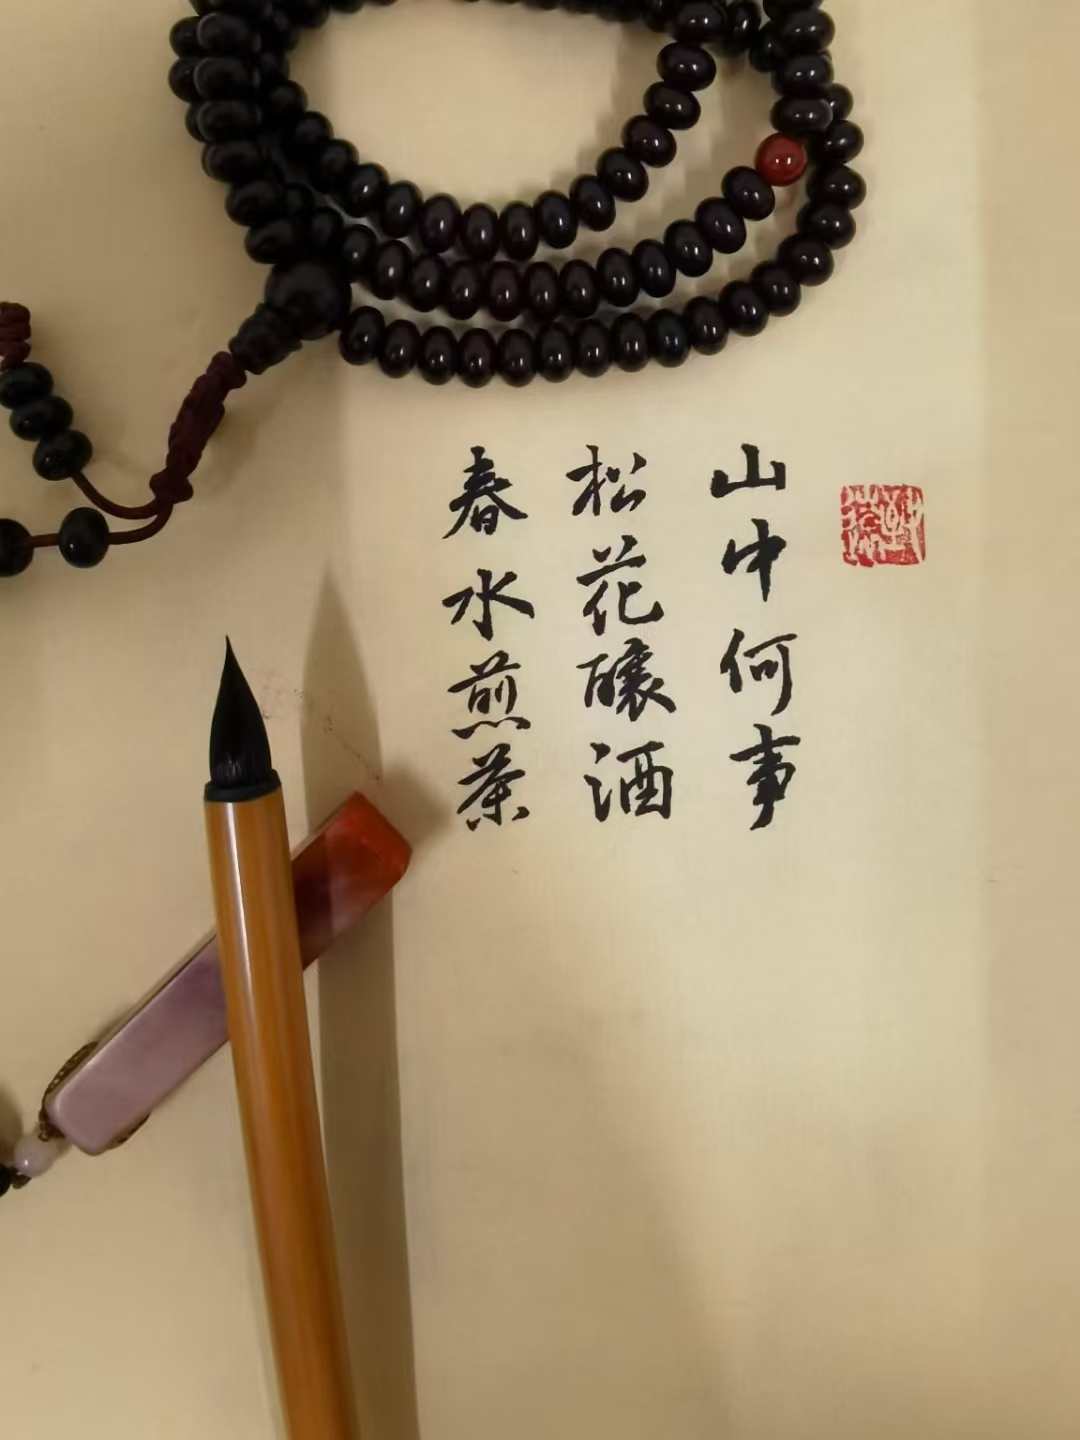 山中何事
松花釀酒
春水煎茶